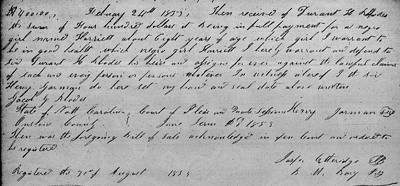 $400.00, February 24th 1853, Then received of Durant H Rhodes
the sum of Four Hundred dollars it being in full payment for a negro
girl named Harriett about Eight years of age which girl I warrant to
be in good health which negro girl Harriett I hereby warrant and defend to
him Durant H Rhodes his heirs and assigns forever against the lawful claims
of each and every person or persons whatever In witness whereof I the sd
Henry Jarman do here set my hand and seal date above written
Jacob Rhodes
State of North Carolina Court of Pleas and Quarter Sessions Henry Jarman
Onslow County June Term AD 1853
Then was the foregoing bill of sale acknowledged in open Court and ordered to
be registered
Jasper Etheridge
Registered August 1853